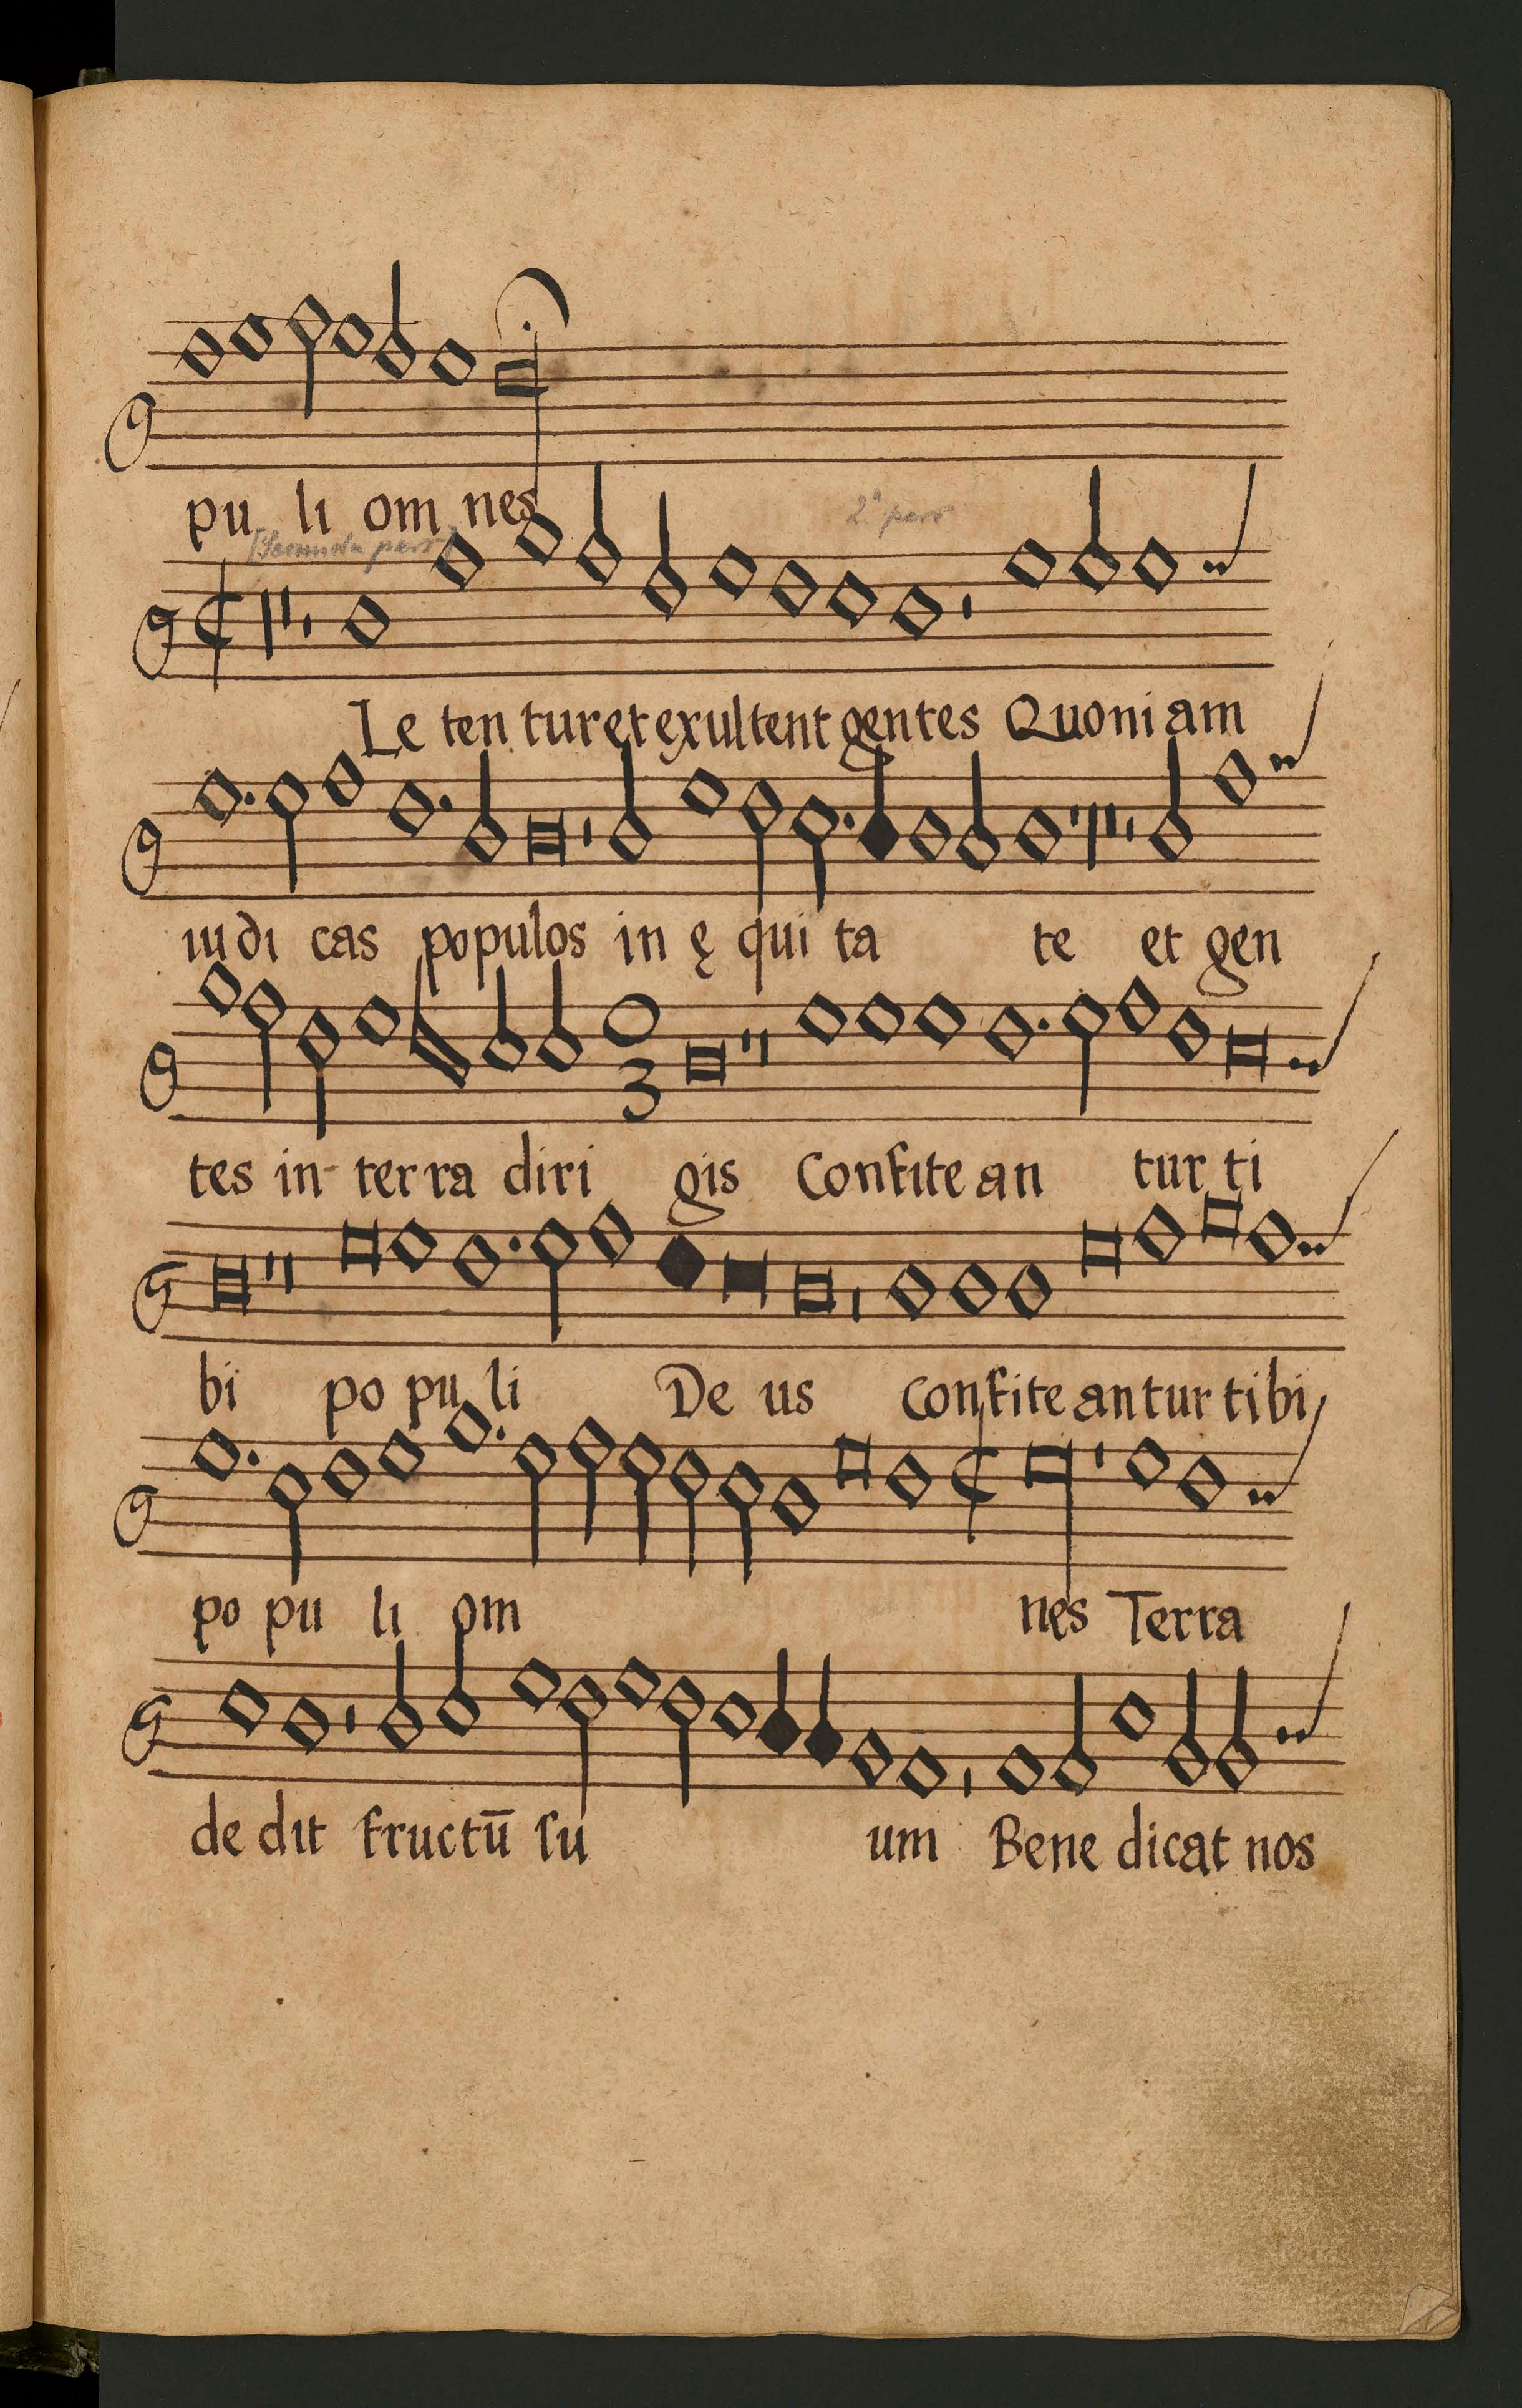 pu li om nes
[Secunda pars]
2ᵃ pars
Le ten tur et exultent gentes Quoni am
iudi cas populos in ę qui ta te et gen
tes in terra diri gis Confite an tur ti
3
bi po pu li De us confite antur tibi
po pu li om nes Terra
de dit fructū ſu um Bene dicat nos